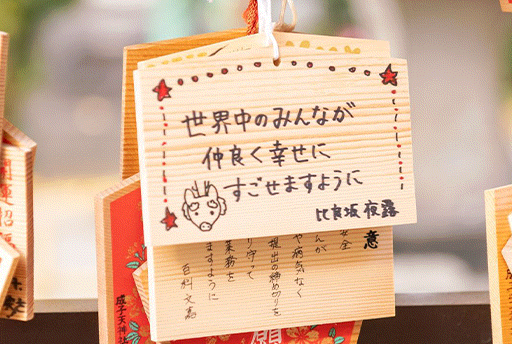 世界中のみんなが
仲良く幸せに
すごせますように
比良坂 夜露
意
安全
んが
や病気なく
提出の締め切りを
り守って
業務を
ますように
百科 文嘉
成子天神社
願
開運招福